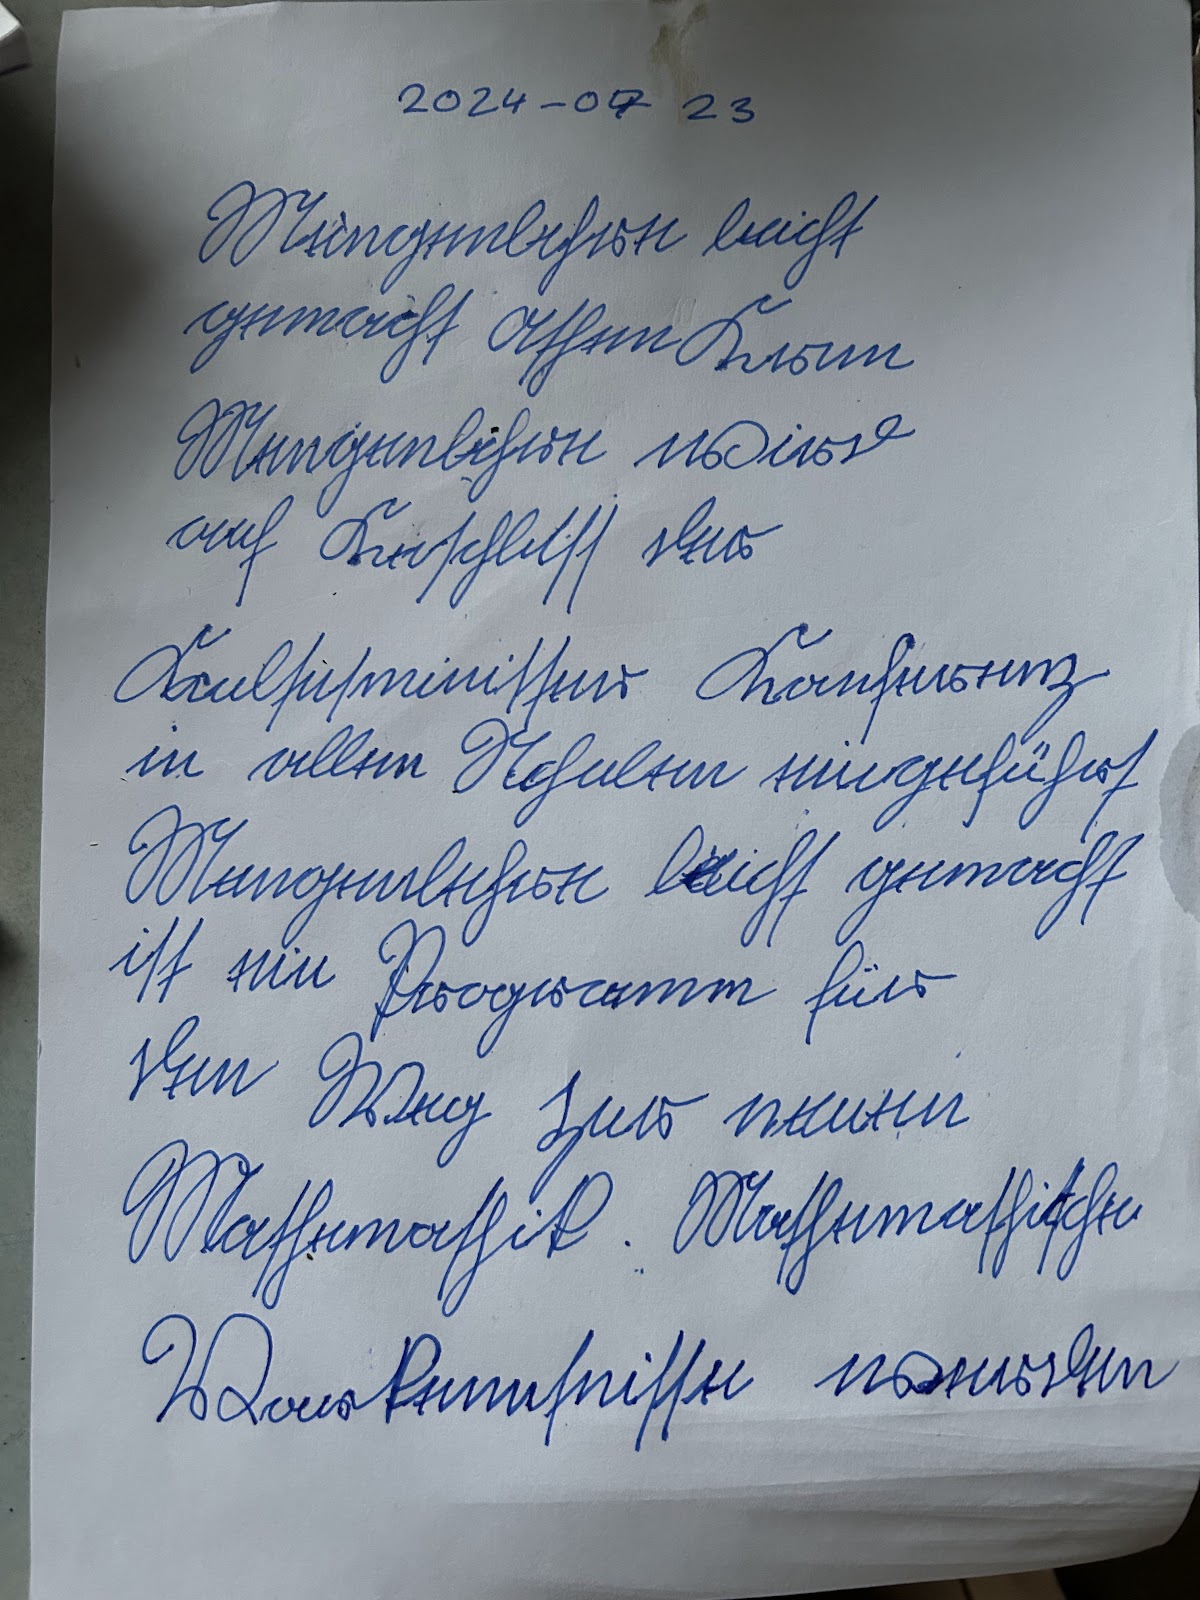 2024-07 23
Mengenlehre leicht
gemacht Athen Kreon
Mengenlehre wird
auf Beschluss der
Kultusminister Konferenz
in allen Schulen eingeführt
Mengenlehre leicht gemacht
ist ein Programm für
den Weg zur neuen
Mathematik. Mathematische
Vorkenntnisse werden